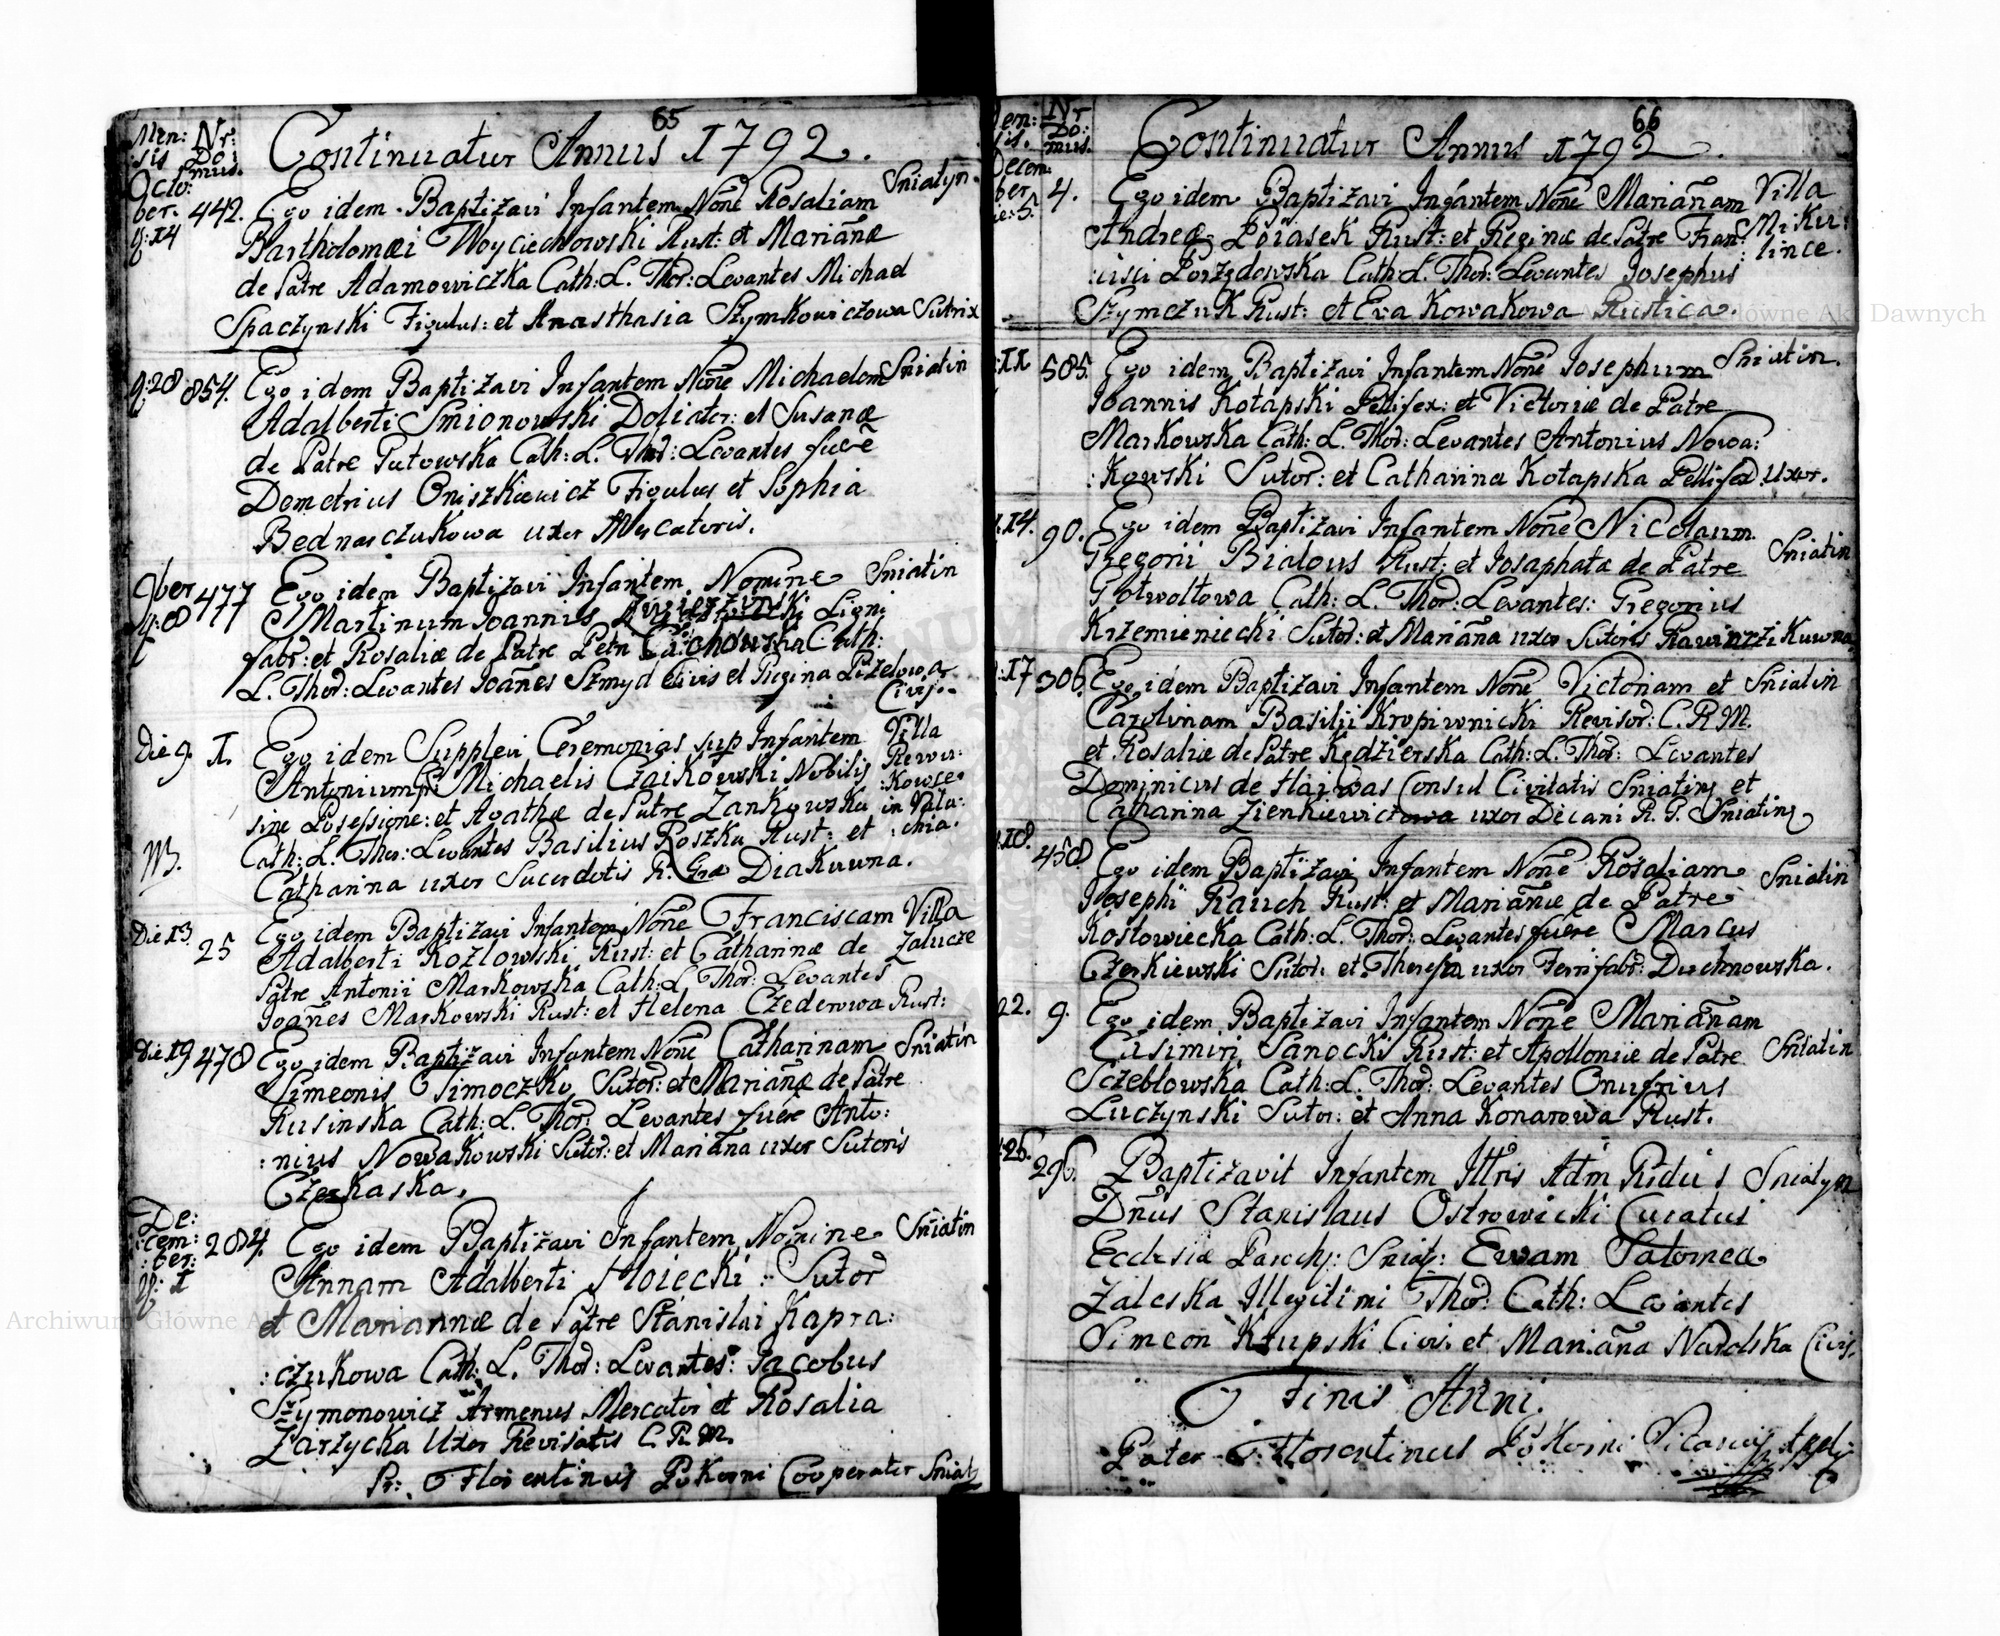 65
Men: Nr:
sis Do:
mus.
Continuatur Annus 1792.
Octo:
ber. 442. Ego idem Baptizavi Infantem Noñe Rosaliam Sniatyn.
d: 14 Bartholomæi Woyciechowski Rust: et Mariañæ
de Patre Adamowiczka Cath: L. Thor: Levantes Michael
Spaczynski Figulus: et Anasthasia Szymkowiczowa Sutrix
d: 28 854. Ego idem Baptizavi Infantem Noñe Michaelem Sniatin
Adalberti Smionowski Doliator: et Susanæ
de Patre Putowska Cath: L. Thor: Levantes fuere
Demetrius Oniszkiewicz Figulus et Sophia
Bednarczukowa uxor Mercatoris.
9ber 477 Ego idem Baptizavi Infantem Nomine Sniatin
d: 8 Martinum Joannis Ligni
fabr: et Rosaliæ de Patre Petri Cath:
L. Thor: Levantes Joañes Szmyd Civis et Regina
Civis.
Die 9. 1. Ego idem Supplevi Ceremonias sup Infantem Villa
Antonium Michaelis Czaikowski Nobilis Rewu:
sine Possessione: et Agathæ de Patre Zankowska :kowce
in Vala:
Cath: L. Thor: Levantes Basilius Roszka Rust: et :chia.
NB. Catharina uxor Sacerdotis R. Græ Diakuwna.
Die 13. 25 Ego idem Baptizavi Infantem Noñe Franciscam Villa
Adalberti Kozlowski Rust: et Catharinæ de Zalucze
Patre Antonii Markowska Cath: L. Thor: Levantes
Joañes Markowski Rust: et Helena Czederowa Rust:
Die 19 478 Ego idem Baptizavi Infantem Noñe Catharinam Sniatin
Simeonis Timoczko Sutor: et Mariañæ de Patre
Rusinska Cath: L. Thor: Levantes fuere Anto:
:nius Nowakowski Sutor: et Mariaña uxor Sutoris
Czerkaska.
De:
:cem: 284. Ego idem Baptizavi Infantem Nomine Sniatin
:ber:
d: 1 Annam Adalberti Sutor
et Mariannæ de Patre Stanislai Kapra:
:czukowa Cath: L. Thor: Levantes: Jacobus
Szymonowicz Armenus Mercator et Rosalia
Zarzycka Uxor Revisoris C. R. M.
Pr: Florentinus Pokorni Cooperator
66
Nr
Do:
mus.
Continuatur Annus 1792.
Decem:
ber 4. Ego idem Baptizavi Infantem Noñe Mariañam Villa
Andreæ Porasek Rust: et Reginæ de Patre Fran: Miku:
:cisci Porzydowska Cath: L. Thor: Levantes Josephus :lince.
Szymczuk Rust: et Eva Kowakowa Rustica.
:11 585. Ego idem Baptizavi Infantem Noñe Josephum Sniatin.
Joannis Kotapski Pellifex: et Victoriæ de Patre
Markowska Cath: L. Thor: Levantes Antonius Nowa:
:kowski Sutor: et Catharina Kotapska Pellifex Uxor.
:14. 90. Ego idem Baptizavi Infantem Noñe Nicolaum
Gregorii Bialous Rust: et Josaphatæ de Patre Sniatin
Gotwoltowa Cath: L. Thor: Levantes: Gregorius
Krzemieniecki Sutor: et Mariaña uxor Sutoris
:17 306. Ego idem Baptizavi Infantem Noñe Victoriam et Sniatin
Carolinam Basilii Kropiwnicki Revisor: C. R. M.
et Rosaliæ de Patre Kędzierska Cath: L. Thor: Levantes
Dominicus de Hajwas Consul Civitatis Sniatin et
Catharina Zienkiewiczowa uxor Decani R. G. Sniatin
:18. 458 Ego idem Baptizavi Infantem Noñe Rosaliam
Josephi Rauch Rust: et Mariañæ de Patre Sniatin
Kostowiecka Cath: L. Thor: Levantes fuere Marcus
Czerkiewski Sutor: et Theresia uxor Ferrifabr: Duchnowska.
22. 9. Ego idem Baptizavi Infantem Noñe Mariañam
Casimiri Sanocki Rust: et Apolloniæ de Patre Sniatin
Sczeblowska Cath: L. Thor: Levantes Onufrius
Luczynski Sutor: et Anna Konarowa Rust.
:26. 296. Baptizavit Infantem Illris Adm Rñdus Sniatyn
Dñus Stanislaus Ostrowicki Curatus
Ecclesiæ Paroch: Sniat: Ewam Salomea
Zaleska Illegitimi Thor: Cath: Levantes
Simeon Krupski Civis et Mariaña Narolska Civis.
Finis Anni.
Pater Florentinus Pokorni
Archiwum Główne Akt Dawnych